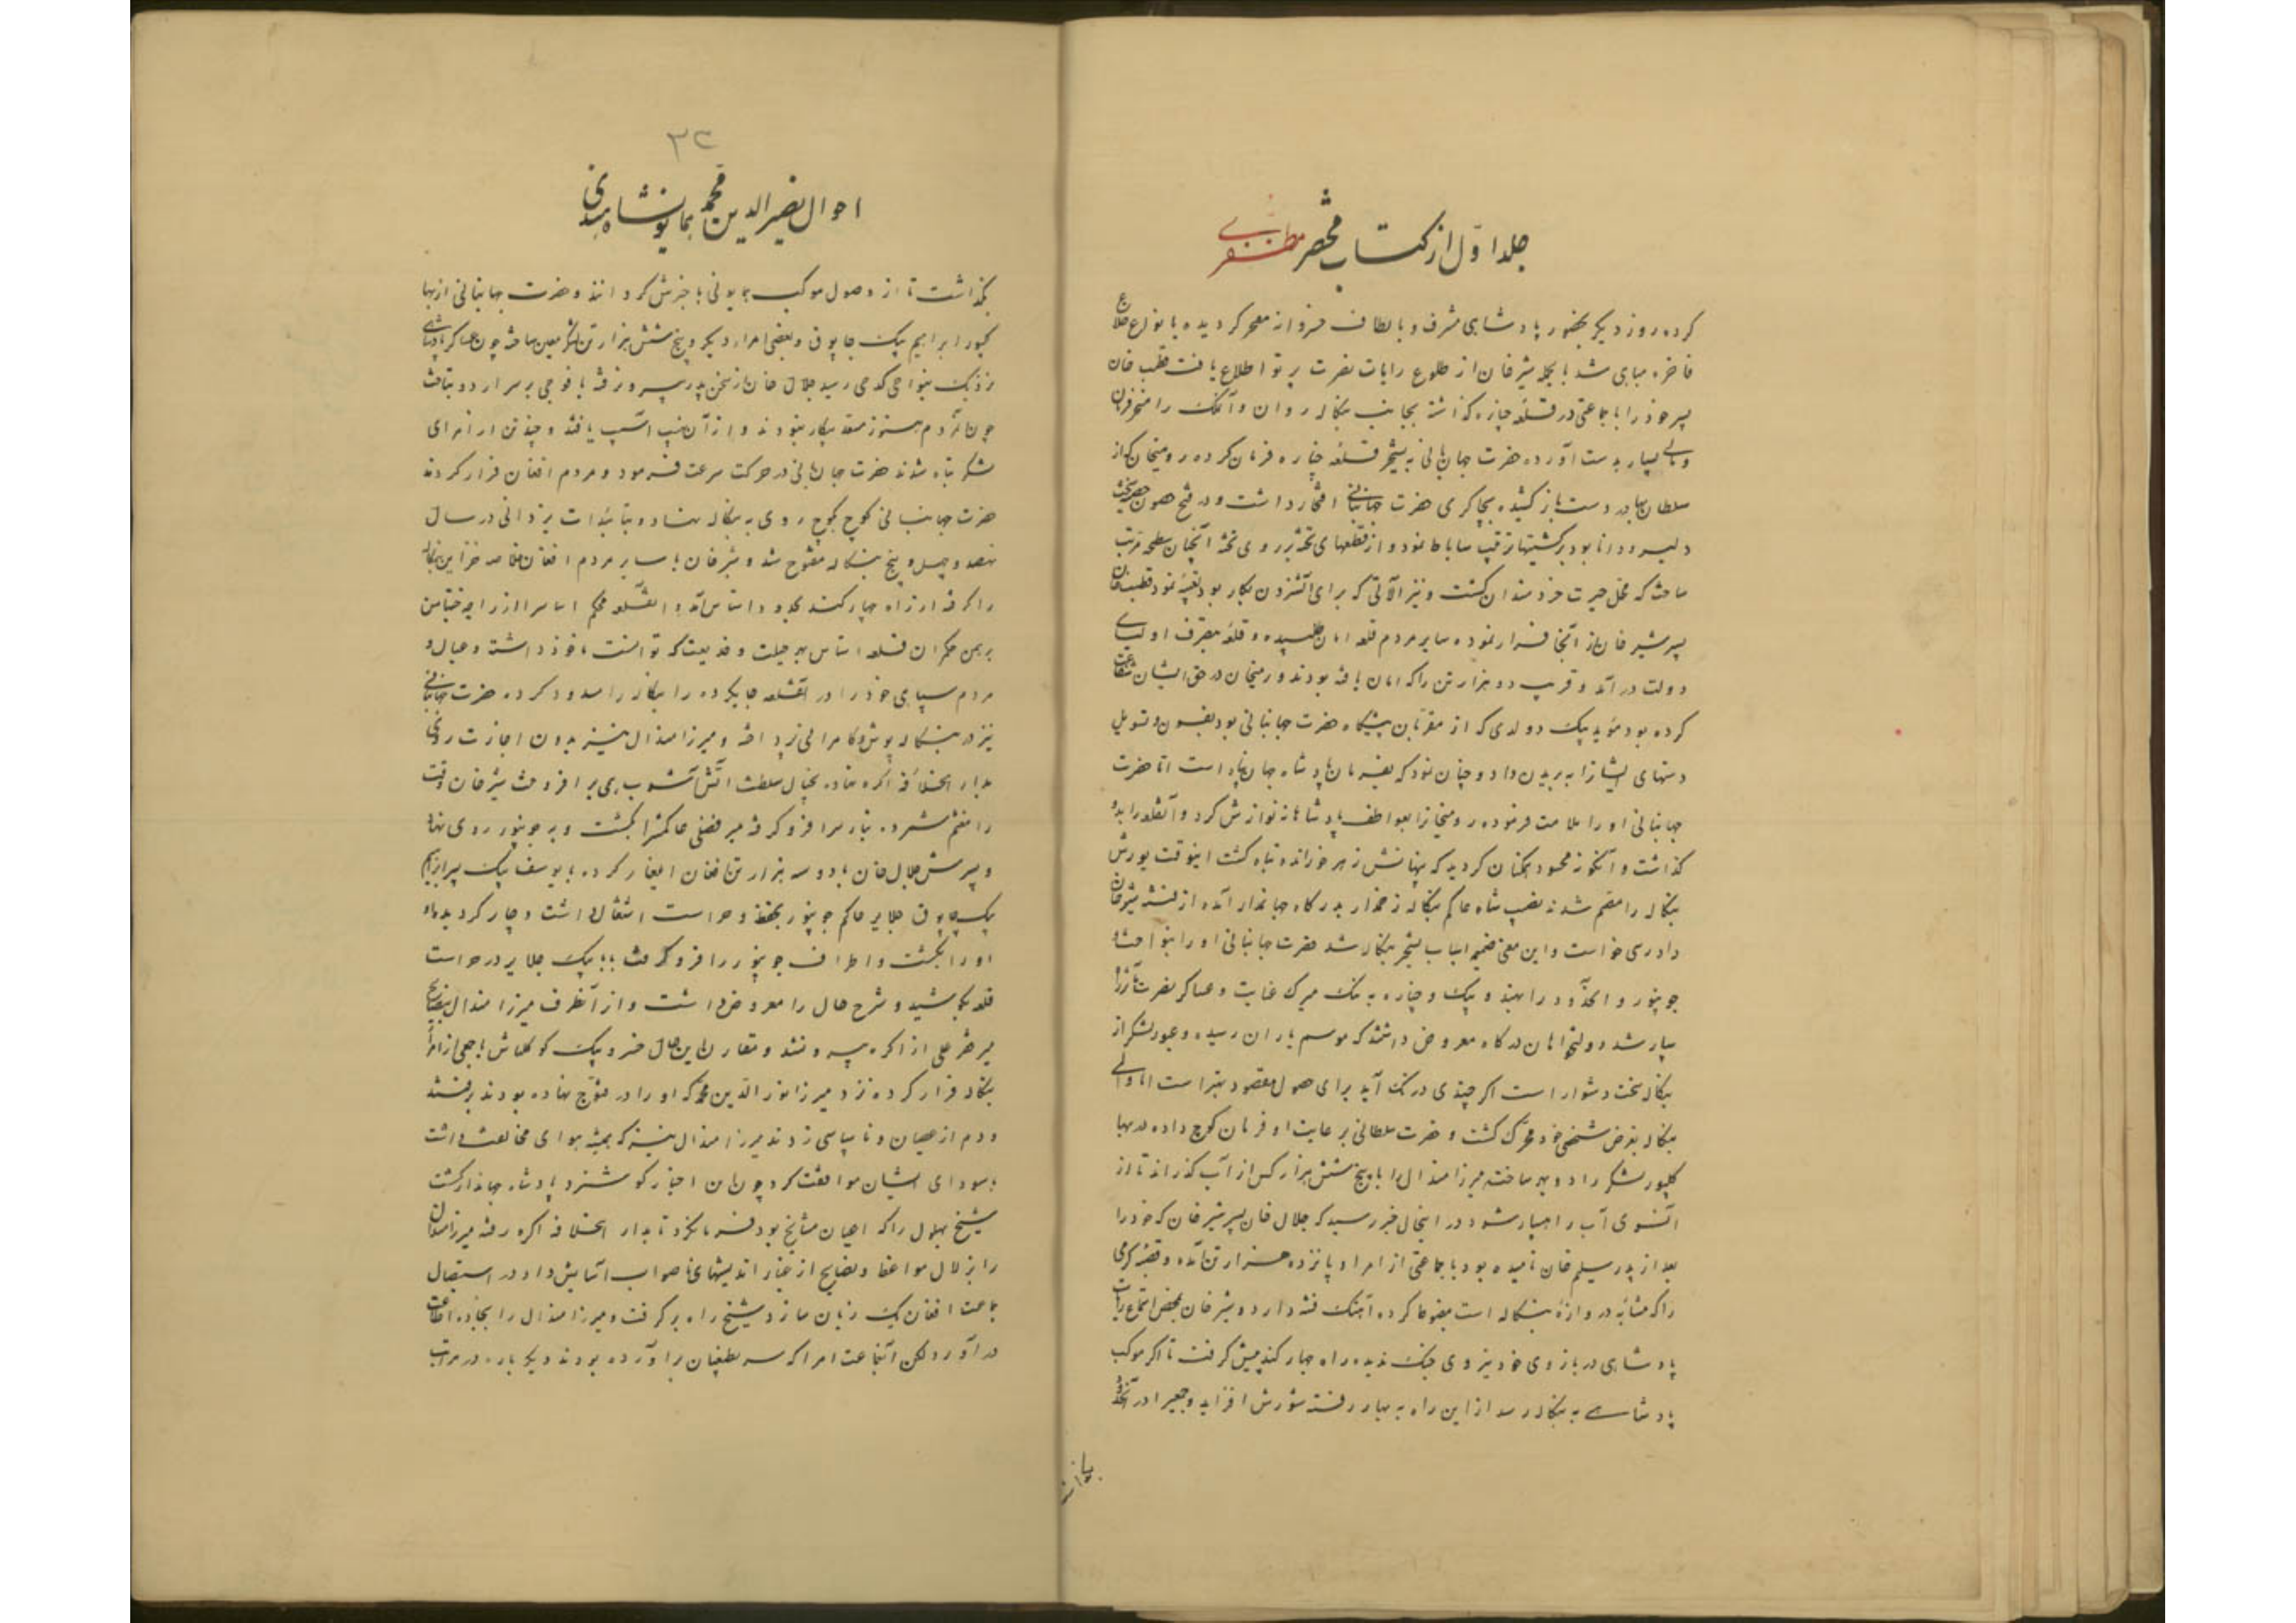 جلد اول از کتاب مختصر مظفری
کرده روز دیگر بحضور پادشاهی مشرف و بالطاف خسروانه مفخر کردیده بانواع خلاع
فاخره مباهی شد بالجمله شیرخان از طلوع رایات نصرت پرتو اطلاع یافت قطب خان
پسر خود را با جماعتی در قلعه چناره کذاشته بجانب بنکاله روان و آنملک را
بسیار بدست آورده حضرت جهانبانی به تسخیر قلعه چناره فرمان کرده رومیخان که از
سلطان بهادر دست باز کشیده بچاکری حضرت جهانبانی افتخار داشت و در فتح حصون
دلیر و دانا بود بر کشتیها ترتیب ساباط نمود و از قطعهای تخته بر روی تخته آنچنان سطحه مرتب
ساخت که محل حیرت خردمندان کشت و نیز آلاتی که برای آتش زدن بکار بود تعبیه نمود قطب خان
پسر شیر خان از آنجا فرار نموده سایر مردم قلعه امان طلبیده و قلعه بتصرف اولیای
دولت در آمد و قریب دو هزار تن را که امان یافته بودند و رومیخان در حق ایشان شفاعت
کرده بود مؤید بیک دولدی که از مقربان پیشکاه حضرت جهانبانی بود بفسون و تسویل
دستهای ایشانرا به بریدن داد و چنان نمود که بفرمان پادشاه جهان پناه است اما حضرت
جهانبانی او را ملامت فرموده رومیخانرا بعواطف پادشاهانه نوازش کرد و آنقلعه را بدو
کذاشت و آنکونه محسود همکنان کردید که پنهانش زهر خورانده تباه کشت اینوقت یورش
بنکاله را مصمم شدند نصیب شاه حاکم بنکاله زخمدار بدرکاه جهاندار آمده از فتنه شیرخان
دادری خواست و این معنی ضمیمه اسباب تسخیر بنکاله شد حضرت جهانبانی او را بنواخت و
جونپور و آنحدود را بهندو بیک و چناره به بیک میرک عنایت و عساکر نصرت مآثر را
سپار شد دولتخواهان درکاه معروض داشتند که موسم باران رسیده و عبور لشکر از
بنکاله سخت دشوار است اکر چندی درنک آید برای حصول مقصود بهتر است اما والی
بنکاله بغرض شخصی خود محرک کشت و حضرت سلطانی برعایت او فرمان کوچ داده در بهاکلپور
لشکر را دو بهر ساخته میرزا هندال را با پنج شش هزار کس از آب کذراند تا از
آنسوی آب راهسپار شود در اینحال خبر رسید که جلال خان پسر شیر خان که خود را
بعد از پدر سلیم خان نامیده بود با جماعتی از امرا و پانزده هزار تن آمده و قصبه کرمی
را که مثابه دروازه بنکاله است مضبوط کرده آهنک فتنه دارد و شیرخان بمحض
پادشاهی در بازوی خود نیروی جنک ندیده راه جهارکند پیش کرفت تا اکر موکب
پادشاهی به بنکاله رسد از این راه به بهار رفته شورش افزاید و جمعی را در آنحدود
۳۲
احوال نصیر الدین محمد همایونشاه هندی
بکذاشت تا از وصول موکب همایونی باخبرش کردانند و حضرت جهانبانی از بهاکلپور
ابراهیم بیک چابوق و بعضی امراء دیکر و پنج شش هزار تن لشکر معین ساخته چون عساکر پادشاهی
نزدیک بنواحی کدهی رسید جلال خان از سخن پدر بیرون رفته با فوجی بر سر اردو بتاخت
چون مردم هنوز مستعد پیکار نبودند و از آن نهیب آسیب یافتند و چند تن از امرای
لشکر تباه شدند حضرت جهانبانی در حرکت سرعت فرمود و مردم افغان فرار کردند
حضرت جهانبانی کوچ بکوچ روی به بنکاله نهاد و بتائیدات یزدانی در سال
نهصد و چهل و پنج بنکاله مفتوح شد و شیرخان با سایر مردم افغان خلاصه خزاین بنکاله
را کرفته از راه جهارکند بحدود رهتاس آمد و آنقلعه محکم اساس را از راجه چنتامن
برهمن حکمران قلعه رهتاس بهر حیلت و خدیعت که توانست ماخوذ داشت و عیال و
مردم سپاهی خود را در آنقلعه جای کرده راه بنکاله را مسدود کرده حضرت جهانبانی
نیز در بنکاله بعیش و کامرانی پرداخته و میرزا هندال نیز بدون اجازت روی
بدار الخلافه اکره نهاد بخیال سلطنت آتش آشوب همی بر افروخت شیرخان وقت
را مغتنم شمرده بنارس را فرو کرفته میر فضلی حاکمش را بکشت و به جونپور روی نهاد
و پسرش جلال خان با دو سه هزار تن افغان ایلغار کرده با یوسف بیک پسر ابراهیم
بیک چابوق جلایر حاکم جونپور بحفظ و حراست اشتغال داشت دچار کردیده
او را بکشت و اطراف جونپور را فرو کرفت بابا بیک جلایر در حراست
قلعه بکوشید و شرح حال را معروض داشت و از آنطرف میرزا هندال بنصایح
میر فخر علی از اکره بیرون شد و مقارن این حال خسرو بیک کوکلتاش با جمعی از امرا
بنکاله فرار کرده نزد میرزا نور الدین محمد که او را در قنوج نهاده بودند برفتند
و دم از عصیان و ناسپاسی زدند میرزا هندال نیز که همیشه هوای مخالفت داشت
بسودای ایشان موافقت کرد چون این اخبار کوشزد پادشاه جهاندار کشت
شیخ بهلول را که اعیان مشایخ بود فرمان کرد تا بدار الخلافه اکره رفته میرزا هندال
را بزلال مواعظ و نصایح از غبار اندیشهای ناصواب آسایش داد و در استیصال
جماعت افغان یک زبان سازد شیخ راه بر کرفت و میرزا هندال را بجاده اطاعت
در آورد لکن آنجماعت امرا که سر بطغیان برآورده بودند دیکر باره در مراتب